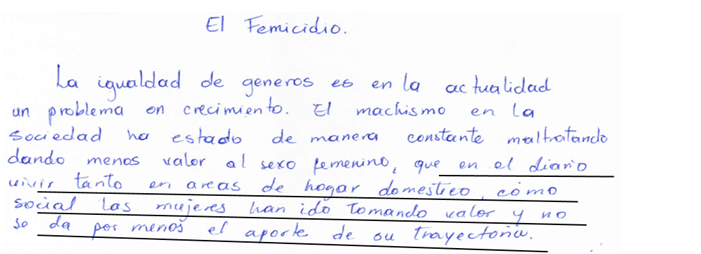 El Femicidio.
La igualdad de generos es en la actualidad
un problema en crecimiento. El machismo en la
sociedad ha estado de manera constante maltratando
dando menos valor al sexo femenino, que en el diario
vivir tanto en areas de hogar domestico, como
social las mujeres han ido tomando valor y no
se da por menos el aporte de su trayectoria.